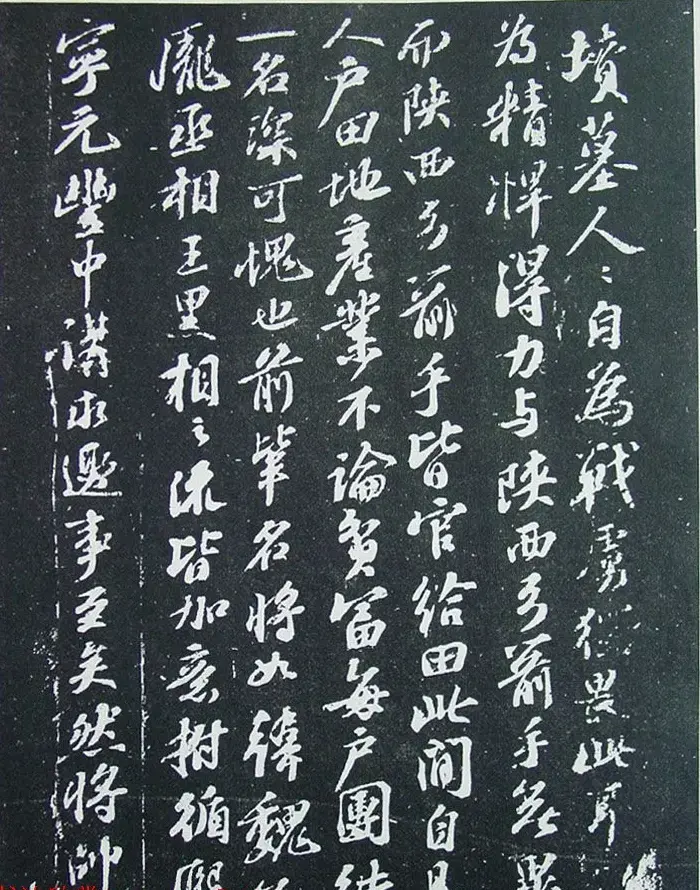 墳墓人〻自為戰虜猶畏此等
為精悍得力与陝西弓箭手無
而陝西弓箭手皆官給田此間自
人户田地產業不論貧富每户團結
一名深可愧也前輩名將如韓魏
龐丞相王黑相之流皆加意拊循熙
寧元豐中講求邊事至矣然將帥